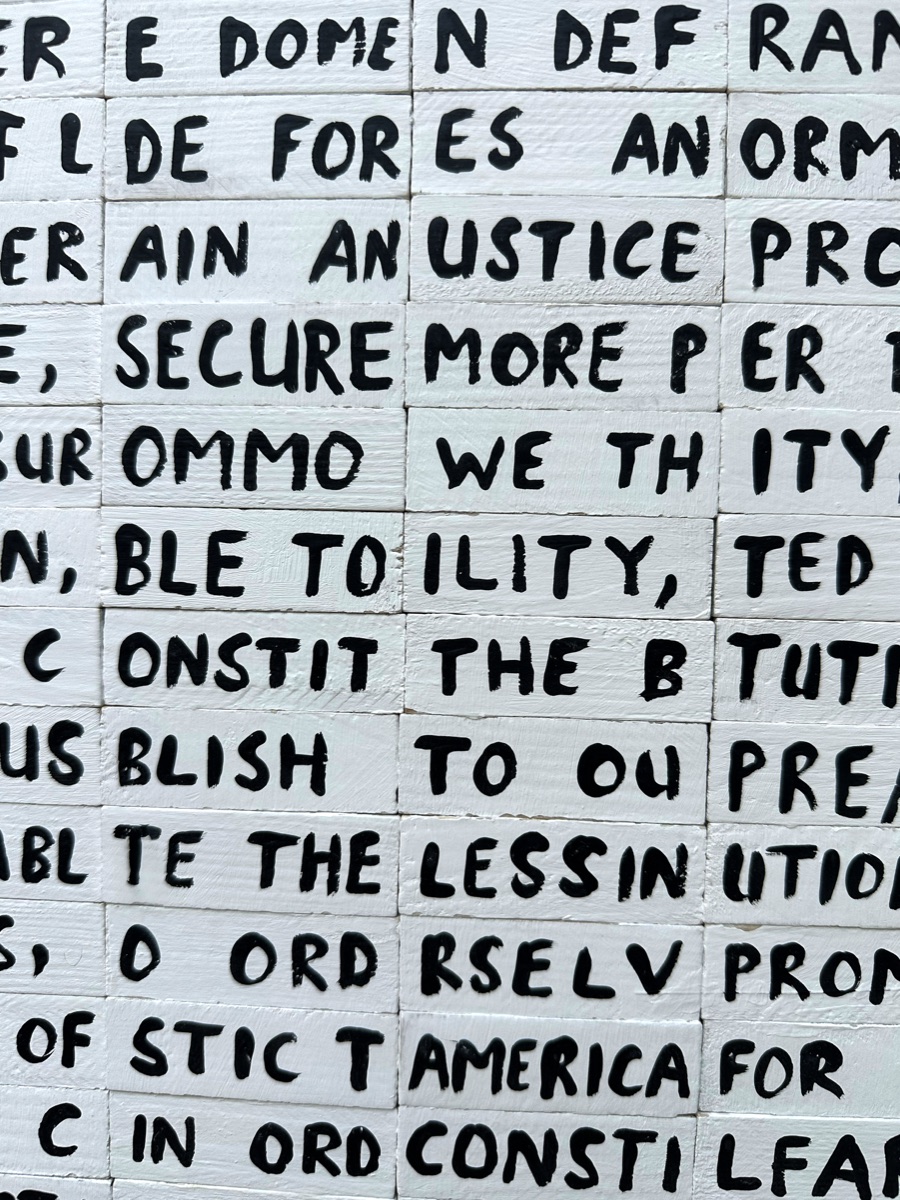 ER E DOME N DEF RAN
F L DE FOR ES AN ORM
ER AIN AN USTICE PRO
E, SECURE MORE P ER
SUR OMMO WE TH ITY.
N, BLE TO ILITY, TED
C ONSTIT THE B TUTI
US BLISH TO OU PREA
ABL TE THE LESSIN UTION
S, O ORD RSELV PROM
OF STIC T AMERICA FOR
C IN ORD CONSTI LFAR